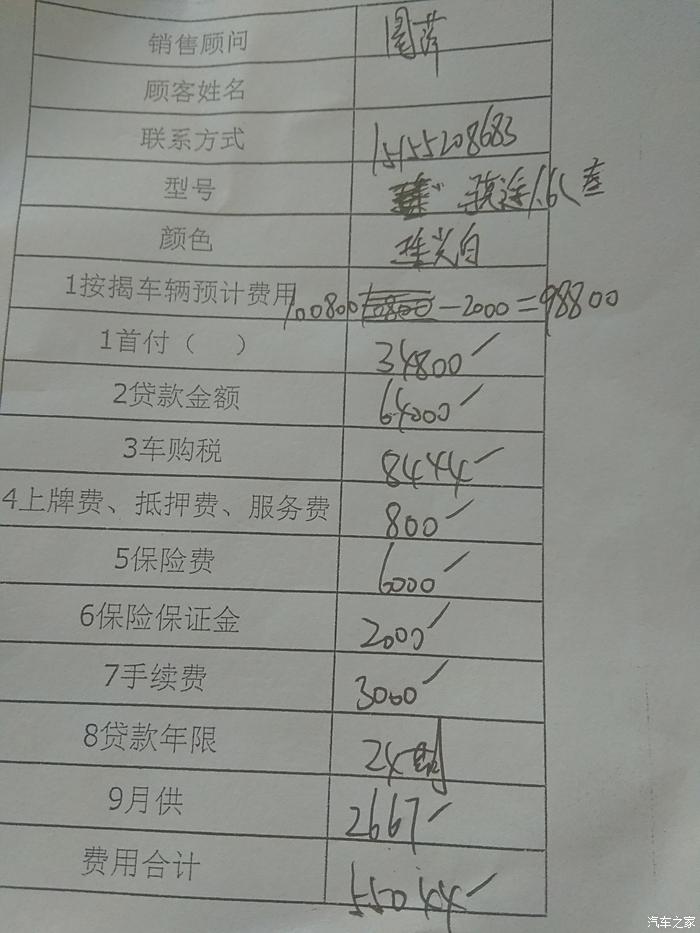 销售顾问
顾客姓名
联系方式 15155208683
型号 骐达1.6L
颜色 珠光白
1按揭车辆预计费用 100800 -2000=98800
1首付（ ） 34800
2贷款金额 64000
3车购税 8444
4上牌费、抵押费、服务费 800
5保险费 6000
6保险保证金 2000
7手续费 3000
8贷款年限 24期
9月供 2667
费用合计 55044
汽车之家